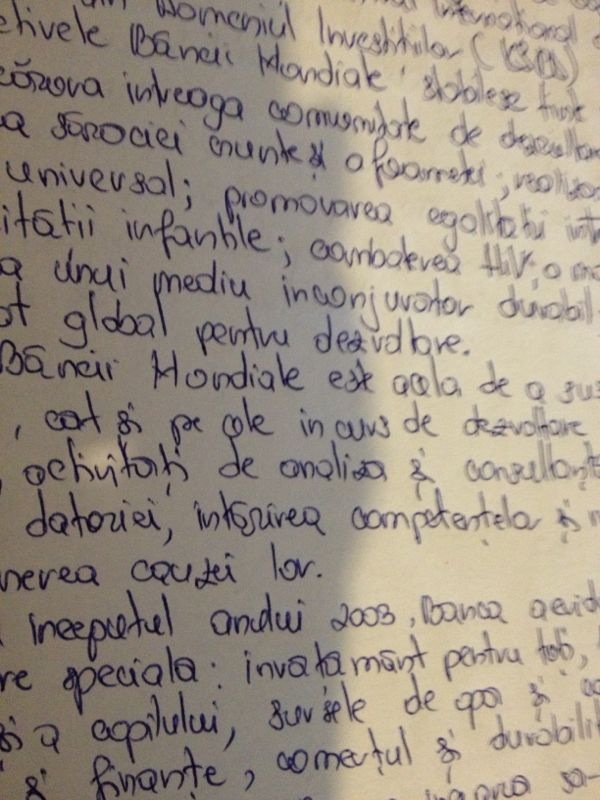 Domeniul Investitiilor (
Băncii Mondiale stabilesc
intreaga comunitate de dezvoltare
a sărăciei crunte și a foametei; realiza
universal; promovarea egalitatii int
ității infantile; combaterea HIV, a
a unui mediu inconjurator durabil
global pentru dezvoltare.
Băncii Mondiale este acela de a sus
, cât și pe cele in curs de dezvoltare
activități de analiza și consultanț
datoriei, intărirea competențela și
nerea cauzei lor.
inceputul anului 2003, Banca a evid
re speciala: invatamânt pentru toți,
și a copilului, sursele de apa și
și finanțe, comerțul și durabilit